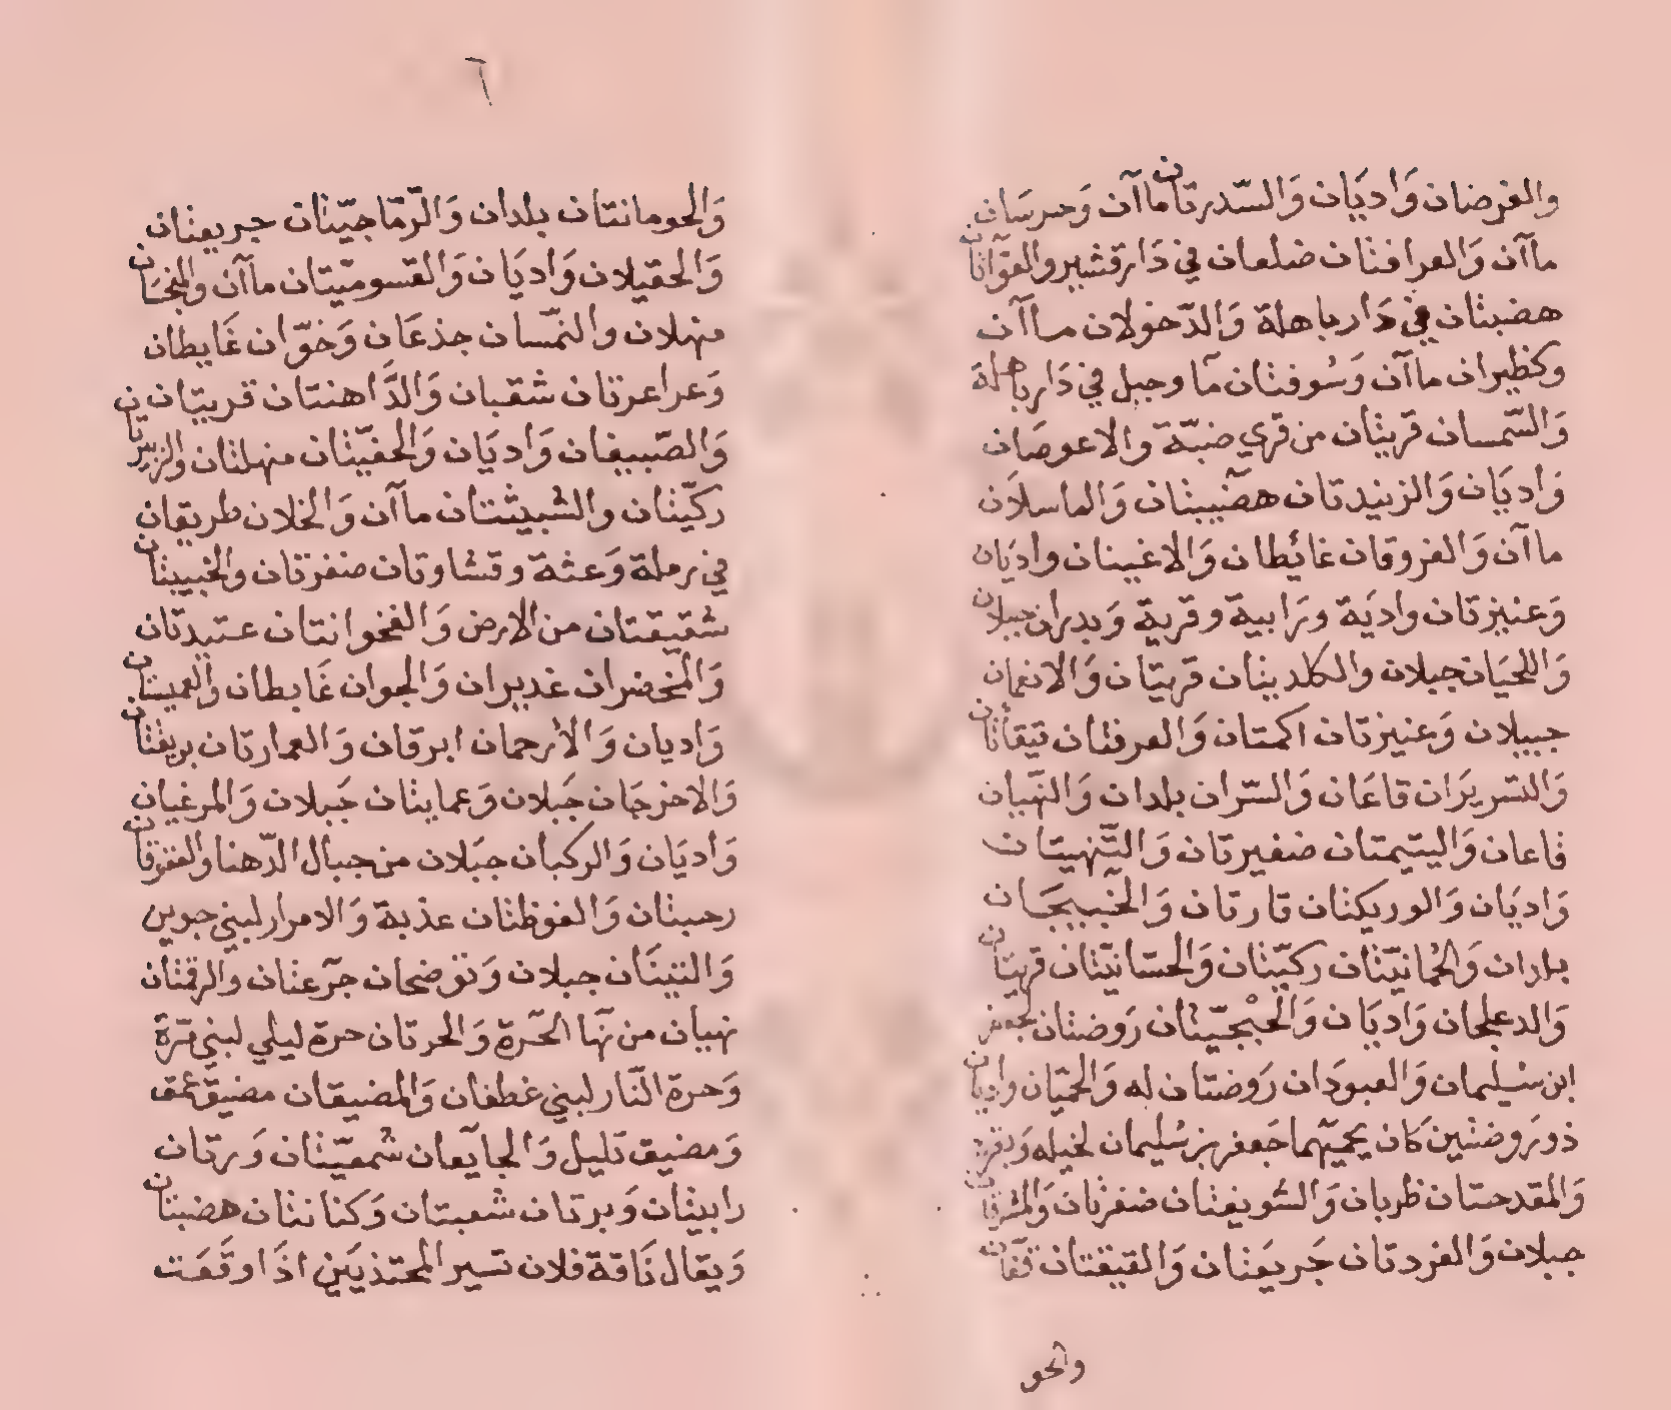 والفرضان وَاديَان وَالسّدرتان ماآن وَحرسَان
ماآن وَالعرافتان ضلعان في دَار قشير والعوّانان
هضبتان في دَار باهلة وَالدّخولان ماآن
وكظيران ماآن وَسُوفتان مَا وجبل في دَار باهلة
وَالشّمسان قريتان من قري ضبّة والاعوصَان
وَاديَان وَالزنيدتان هضيبتان وَالماسلَان
ماآن وَالفروقان غائطان وَالاغينان واديَان
وَعنيزتان واديَة ورَابية وقرية وَبدران جبلان
وَاللحيَان جبلان والكلدينان قريتان وَالانعمان
جبيلان وَعنيزتان اكمتان وَالعرفتان
وَالنسّريرَان قاعَان وَالسّران بلدان وَالنّهيان
قاعان وَاليتيمتان ضفيرتان وَالتّنهيتان
وَاديَان وَالوريكتان قارتان وَالخبيجَان
بلدان وَالحُمانيّتان ركيّتان وَالحسّانيّتان قريتان
وَالدعلجان وَاديَان وَالحبْجيّتان رَوضتان لجعفر
ابن سُليمان وَالعبودَان رَوضتان له وَالحميّان واديان
ذو رَوضتين كان يحميهما جَعفر بن سُليمان لخيله
وَالمقدحتان ظربان وَالشويفتان ضفرتان وَالمشرفان
جبلان وَالفردتان جَريعَتان وَالقيقتان قفّان
والحو
٦
وَالحومانتان بلدان وَالرّمّاجيّتان جريعتان
وَالحقيلان وَاديَان وَالقسوميّتان ماآن
منهلان والنمّسان جذعَان وَخوّان غَايطان
وَعراعرتان شقبان وَالدَّاهنتان قريتان
وَالصّبيغان وَاديَان وَالحفيّتان منهلتان والزبيرتان
ركيّتان والشبيثتان ماآن وَالخلان طريقان
في رملة وَعثة وقشاوتان ضفرتان والخبيبتان
شقيقتان من الارض وَالفخوانتان عتيدتان
وَالمخضران غديران وَالجوان غَايطان والعميستان
وَاديان وَالارحمان ابرقان وَالعمارتان بريقتان
وَالاخرجَان جَبلان وَعمايتان جَبلان وَالمرغبان
وَاديَان وَالركبان جبَلان من جبال الدّهنا والفرقان
رحبتان وَالفوظتان عذبة وَالامرار لبني جوين
وَالتينَان جبلان وَتوضحان جَرعتان والرقمتان
نهيان من نهَا الحَرة وَالحرتان حرة ليلي لبني مُرّة
وَحرة النّار لبني غطفان وَالمضيقان مضيق عمق
وَمضيق تليل وَالجايعان شمعيّتان وَرتان
رابيتان وَبرتان شعبتان وَكنانتان هضبتان
وَيقال نَاقة فلان تسير المحتذيَين اذَا وقَعت